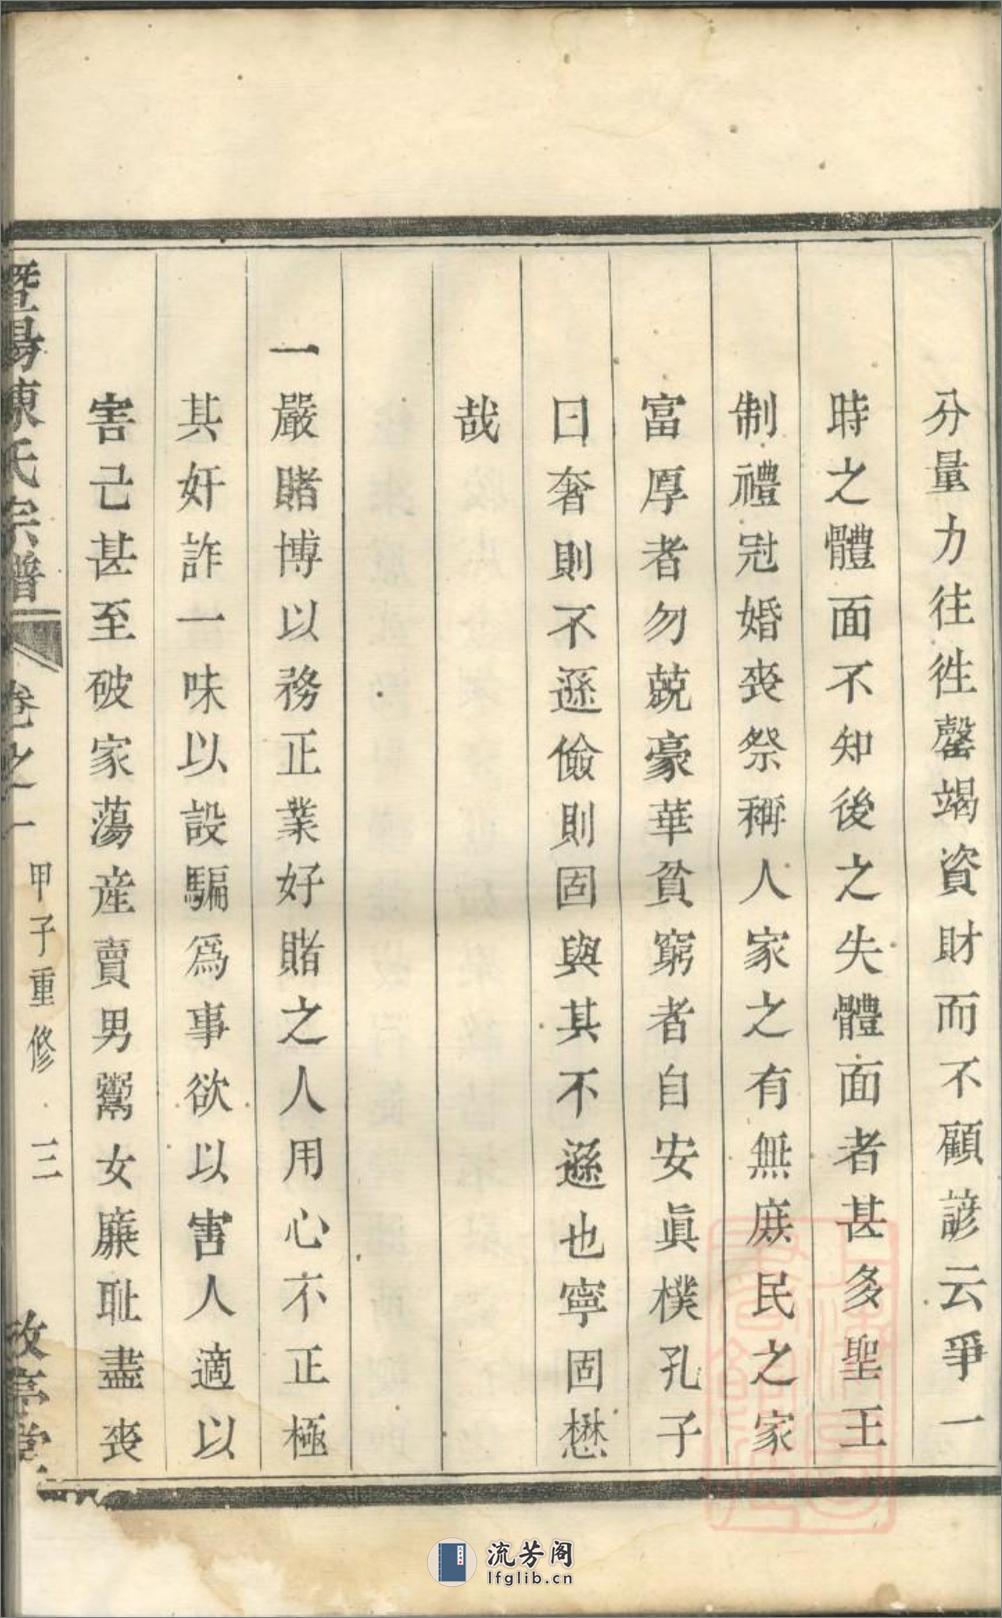 分量力往往罄竭資財而不顧諺云爭一
時之體面不知後之失體面者甚多聖王
制禮冠婚喪祭稱人家之有無庶民之家
富厚者勿兢豪華貧窮者自安眞樸孔子
曰奢則不遜儉則固與其不遜也寧固懋
哉
一嚴賭博以務正業好賭之人用心不正極
其奸詐一味以設騙爲事欲以害人適以
害己甚至破家蕩産賣男鬻女廉耻盡喪
暨陽陳氏宗譜 卷之一 甲子重修 三
流芳阁
lfglib.cn